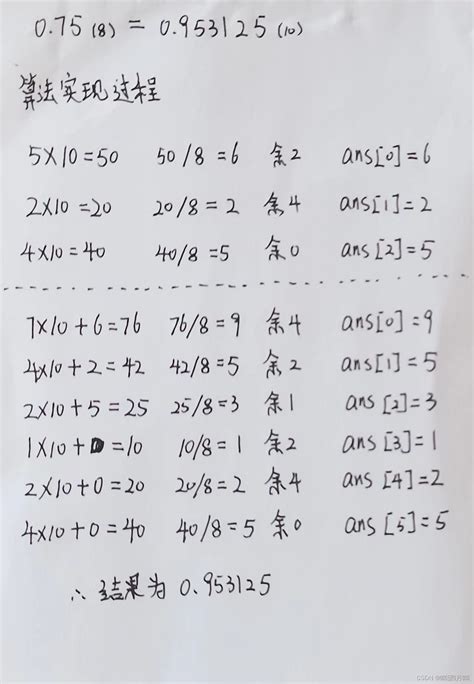 0.75(8) = 0.953125(10)
算法实现过程
5×10=50 50/8=6 余2 ans[0]=6
2×10=20 20/8=2 余4 ans[1]=2
4×10=40 40/8=5 余0 ans[2]=5
7×10+6=76 76/8=9 余4 ans[0]=9
4×10+2=42 42/8=5 余2 ans[1]=5
2×10+5=25 25/8=3 余1 ans[2]=3
1×10+0=10 10/8=1 余2 ans[3]=1
2×10+0=20 20/8=2 余4 ans[4]=2
4×10+0=40 40/8=5 余0 ans[5]=5
∴ 结果为 0.953125
CSDN